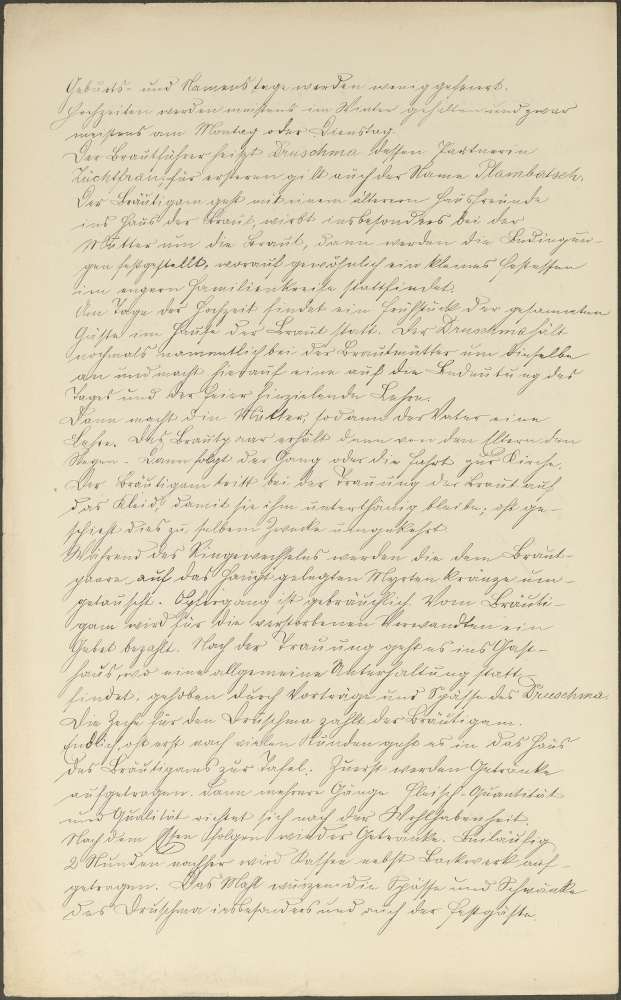 Geburts- und Namenstage werden wenig gefeiert.
Hochzeiten werden meistens im Winter gehalten und zwar
meistens am Montag oder Dienstag.
Der Brautführer heißt Druschma dessen Partnerin
Züchtbraut, für ersteren gilt auch der Name Plambatsch.
Der Bräutigam geht mit einem älteren Hausfreunde
ins Haus der Braut, wirbt insbesonders bei der
Mutter um die Braut, dann werden die Bedingun-
gen festgestellt, worauf gewöhnlich ein kleines Festessen
im engern Familienkreise stattfindet.
Am Tage der Hochzeit findet ein Frühstück der gesammten
Gäste im Hause der Braut statt. Der Druschma hält
nochmals namentlich bei der Brautmutter um dieselbe
an und macht hierauf eine auf die Bedeutung des
Tages und der Feier hinzielende Lehre.
Dann macht die Mutter, sodann der Vater eine
Lehre. Das Brautpaar erhält dann von den Eltern den
Segen - Dann folgt der Gang oder die Fahrt zur Kirche.
Der Bräutigam tritt bei der Trauung der Braut auf
das Kleid, damit sie ihm unterthänig bleibe; oft ge-
schieht dies zu selbem Zwecke umgekehrt.
Während des Ringewechselns werden die dem Braut-
paare auf das Haupt gelegten Myrtenkränze um-
getauscht. Opfergang ist gebräuchlich. Vom Bräuti-
gam wird für die verstorbenen Verwandten ein
Gebet bezahlt. Nach der Trauung geht es ins Gast-
haus, wo eine allgemeine Unterhaltung statt-
findet, gehoben durch Vorträge und Spässe des Druschma.
Die Zeche für den Druschma zahlt der Bräutigam.
Endlich, oft erst nach vielen Stunden geht es in das Haus
des Bräutigams zur Tafel. Zuerst werden Getränke
aufgetragen, dann mehrere Gänge Fleisch. Quantität
und Qualität richtet sich nach der Wohlhabenheit.
Nach dem Essen folgen wieder Getränke. Beiläufig
2 Stunden nachher wird Kaffee nebst Backwerk auf-
getragen. Das Mahl würzen die Spässe und Schwänke
des Druschma insbesonders und auch der Festgäste.